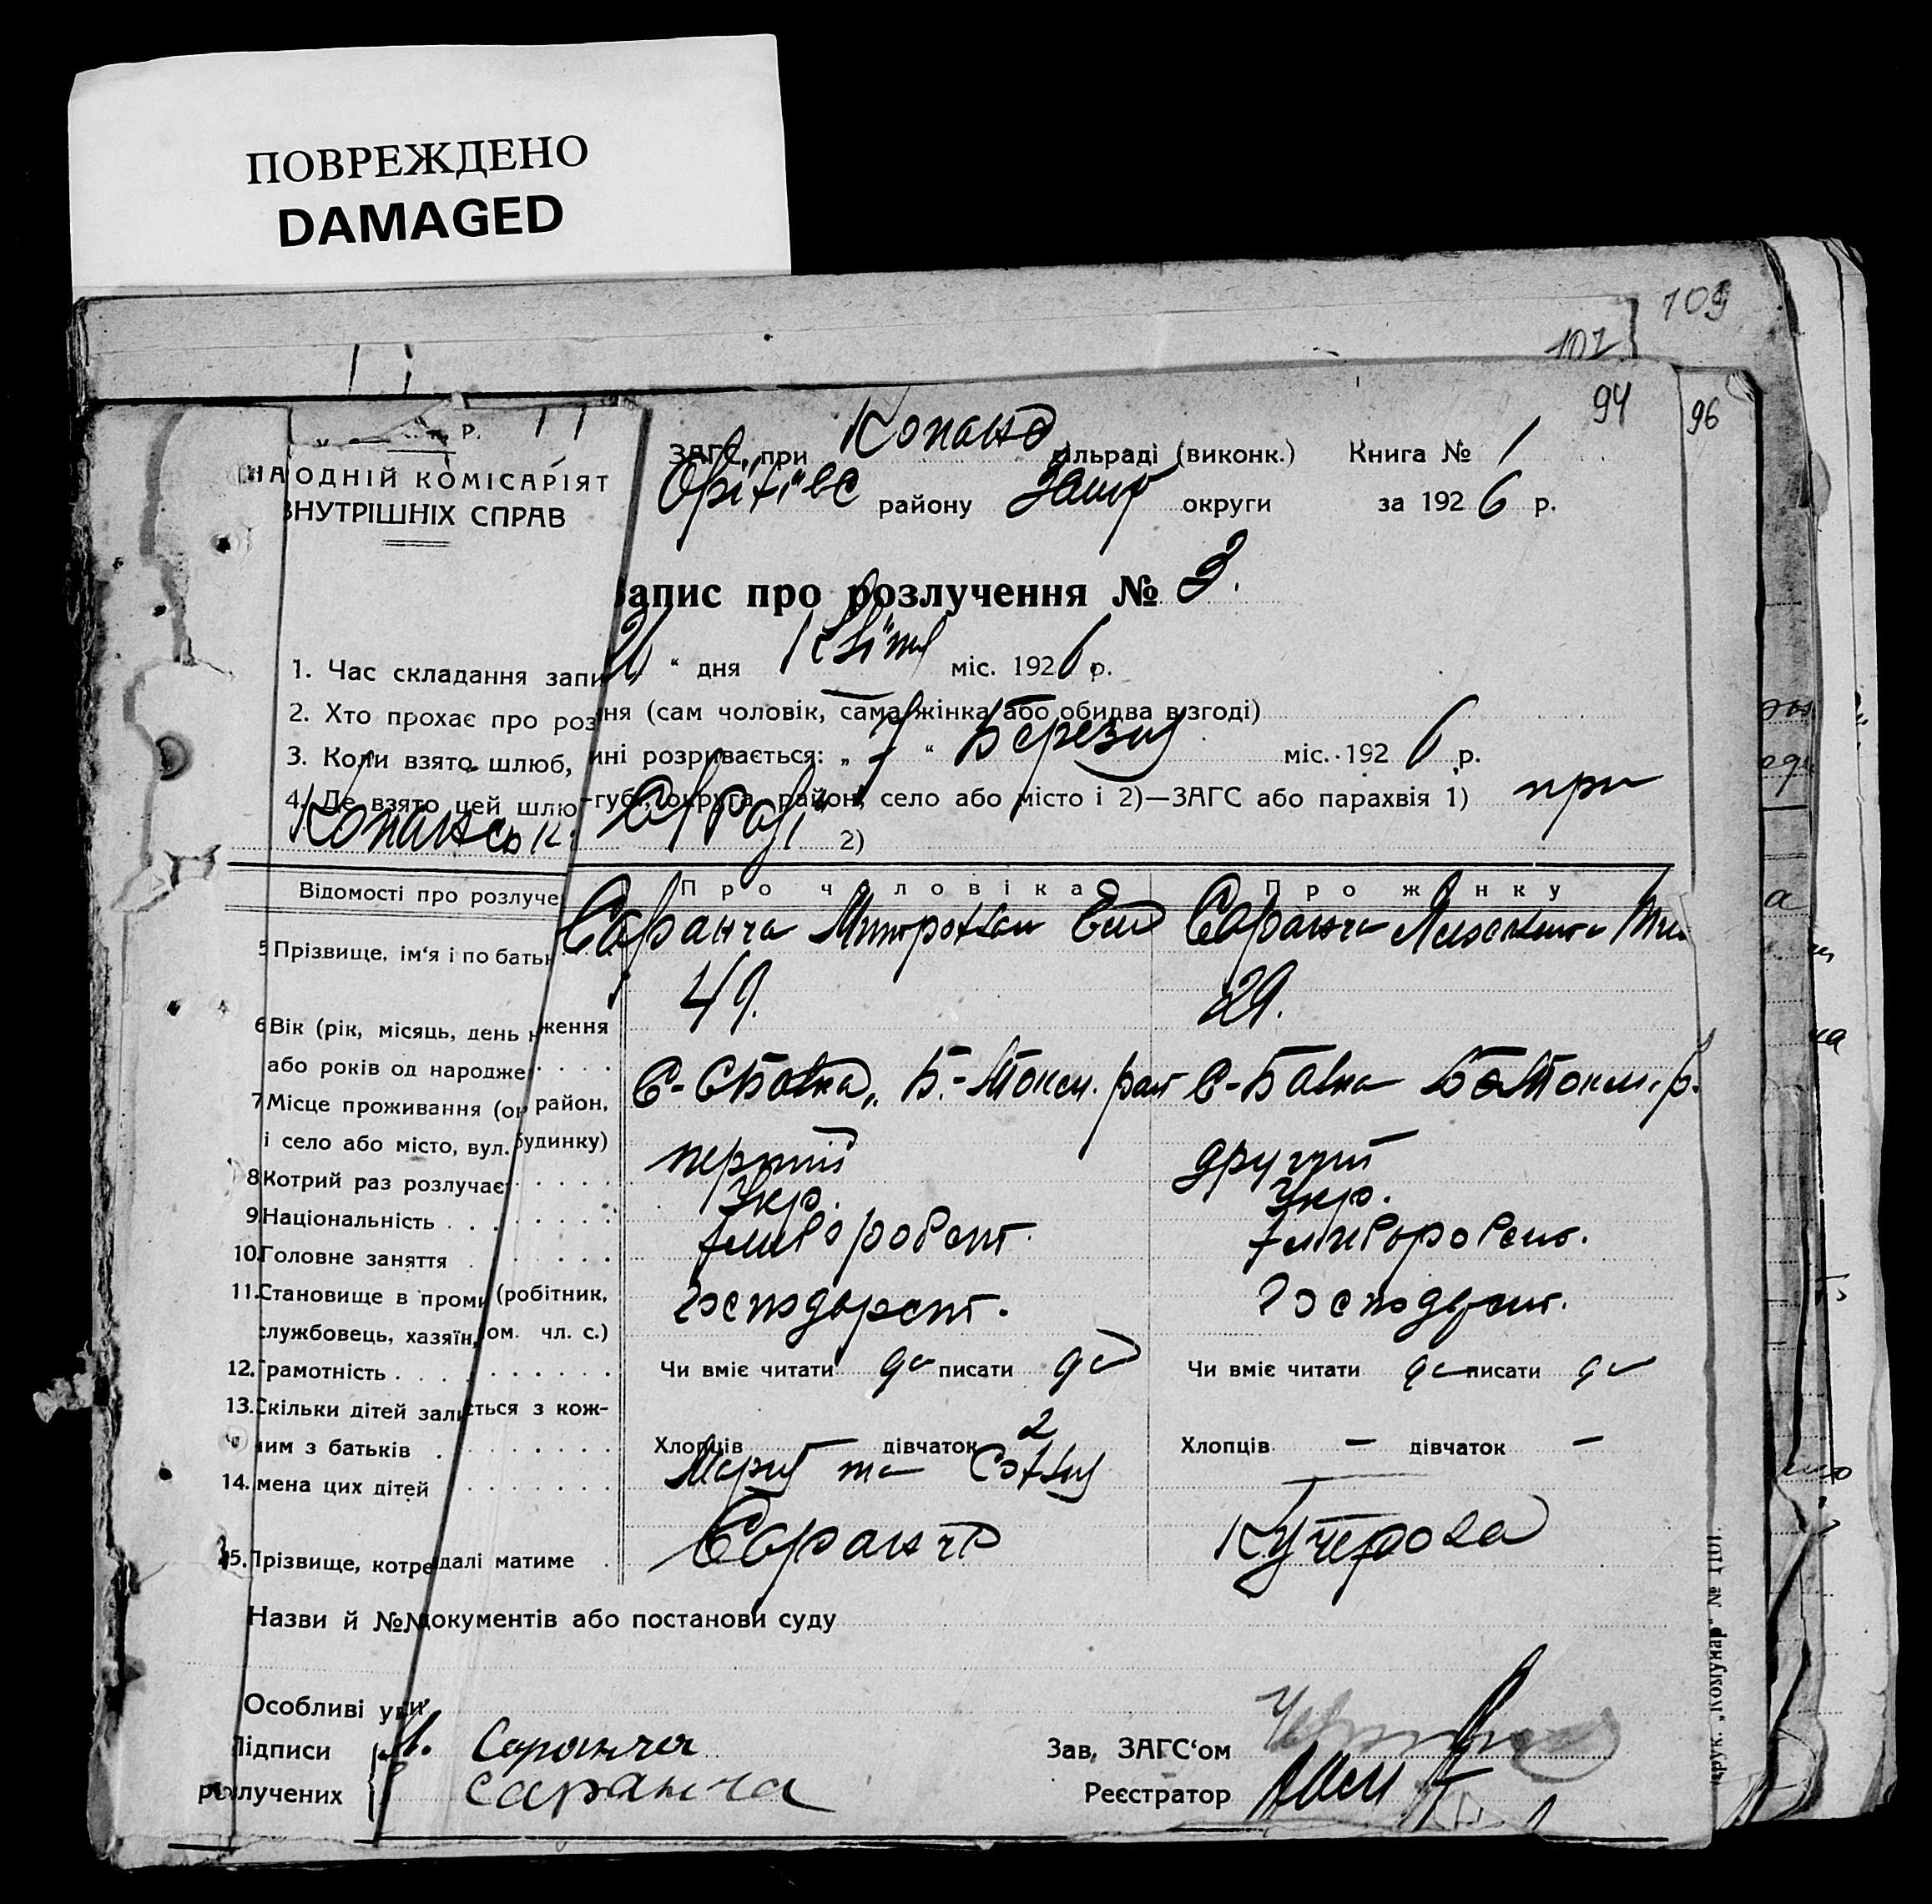 ПОВРЕЖДЕНО
DAMAGED
109
107
94
96
Р.
НА ОДНІЙ КОМІСАРІЯТ
ВНУТРІШНІХ СПРАВ
ЗАГС, при Копансь сільраді (виконк.) Книга № 1
району Запор округи за 1926 р.
Запис про розлучення № 3.
1. Час складання запи " дня Квітня міс. 1926 р.
2. Хто прохає про роз ня (сам чоловік, сама жінка або обидва в згоді)
3. Коли взято шлюб, ині розривається: „ 7 " Березня міс. 1926 р.
4. Де взято цей шлю -губ., округа, район, село або місто і 2)—ЗАГС або парахвія 1) при
Копанськ С/Раді 2)
Відомості про розлуче Про чоловіка Про жінку
5 Прізвище, ім'я і по батьк Саранча Митрофан Саранча
49. 29.
6 Вік (рік, місяць, день ження
або років од народже
7 Місце проживання (ок район, Б.-Токм. рай Б. Токм. р.
і село або місто, вул. будинку)
8 Котрий раз розлучає перший другий
9 Національність Укр. Укр.
10. Головне заняття хлібороб хлібороб
11. Становище в проми (робітник, господар господар
службовець, хазяїн, ом. чл. с.)
12. Грамотність Чи вміє читати да писати да Чи вміє читати да писати да
13. Скільки дітей зали ється з кож-
ним з батьків Хлопців дівчаток 2 Хлопців — дівчаток —
14. мена цих дітей Марія та Софія
15. Прізвище, котре далі матиме Саранча Кучерова
Назви й №№ документів або постанови суду
Особливі ув ги
Підписи М. Саранча Зав. ЗАГС'ом
розлучених Саранча Реєстратор
Друк. „Комунар" № 1101